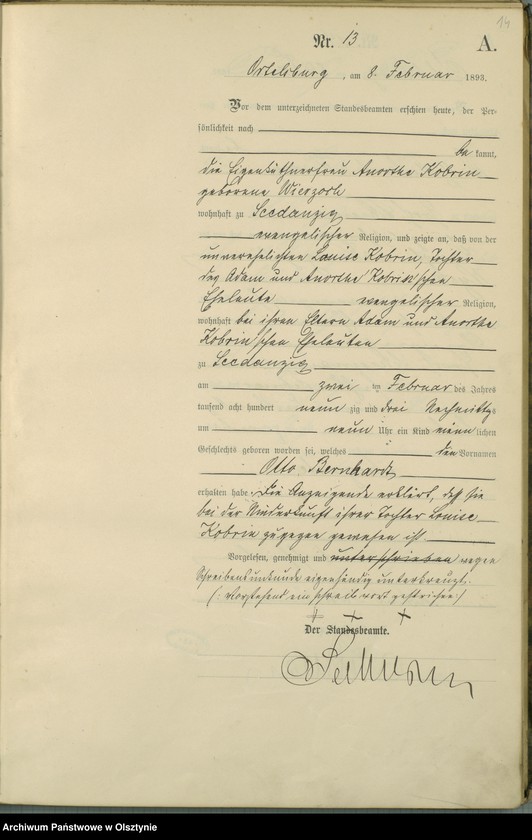 14
Nr. 13
A.
Ortelsburg, am 8. Februar 1893.
Vor dem unterzeichneten Standesbeamten erschien heute, der Per-
sönlichkeit nach
be kannt,
die Eigenkäthnerfrau Anorthe Kobrin
geborene
wohnhaft zu Seedanzig
evangelischer Religion, und zeigte an, daß von der
unverehelichten Louise Kobrin, Tochter
des Adam und Anorthe Kobrin'schen
Eheleute evangelischer Religion,
wohnhaft bei ihren Eltern Adam und Anorthe
Kobrin'schen Eheleuten
zu Seedanzig
am zwei ten Februar des Jahres
tausend acht hundert neun zig und drei Nachmittags
um neun Uhr ein Kind männlichen
Geschlechts geboren worden sei, welches den Vornamen
Otto Bernhard
erhalten habe. Die Anzeigende erklärt, daß sie
bei der Niederkunft ihrer Tochter Louise
Kobrin zugegen gewesen ist
Vorgelesen, genehmigt und unterschrieben wegen
Schreibensunkunde eigenhändig unterkreuzt.
(: Vorstehend ein Schreibwort gestrichen :)
+ + +
Der Standesbeamte.
Archiwum Państwowe w Olsztynie